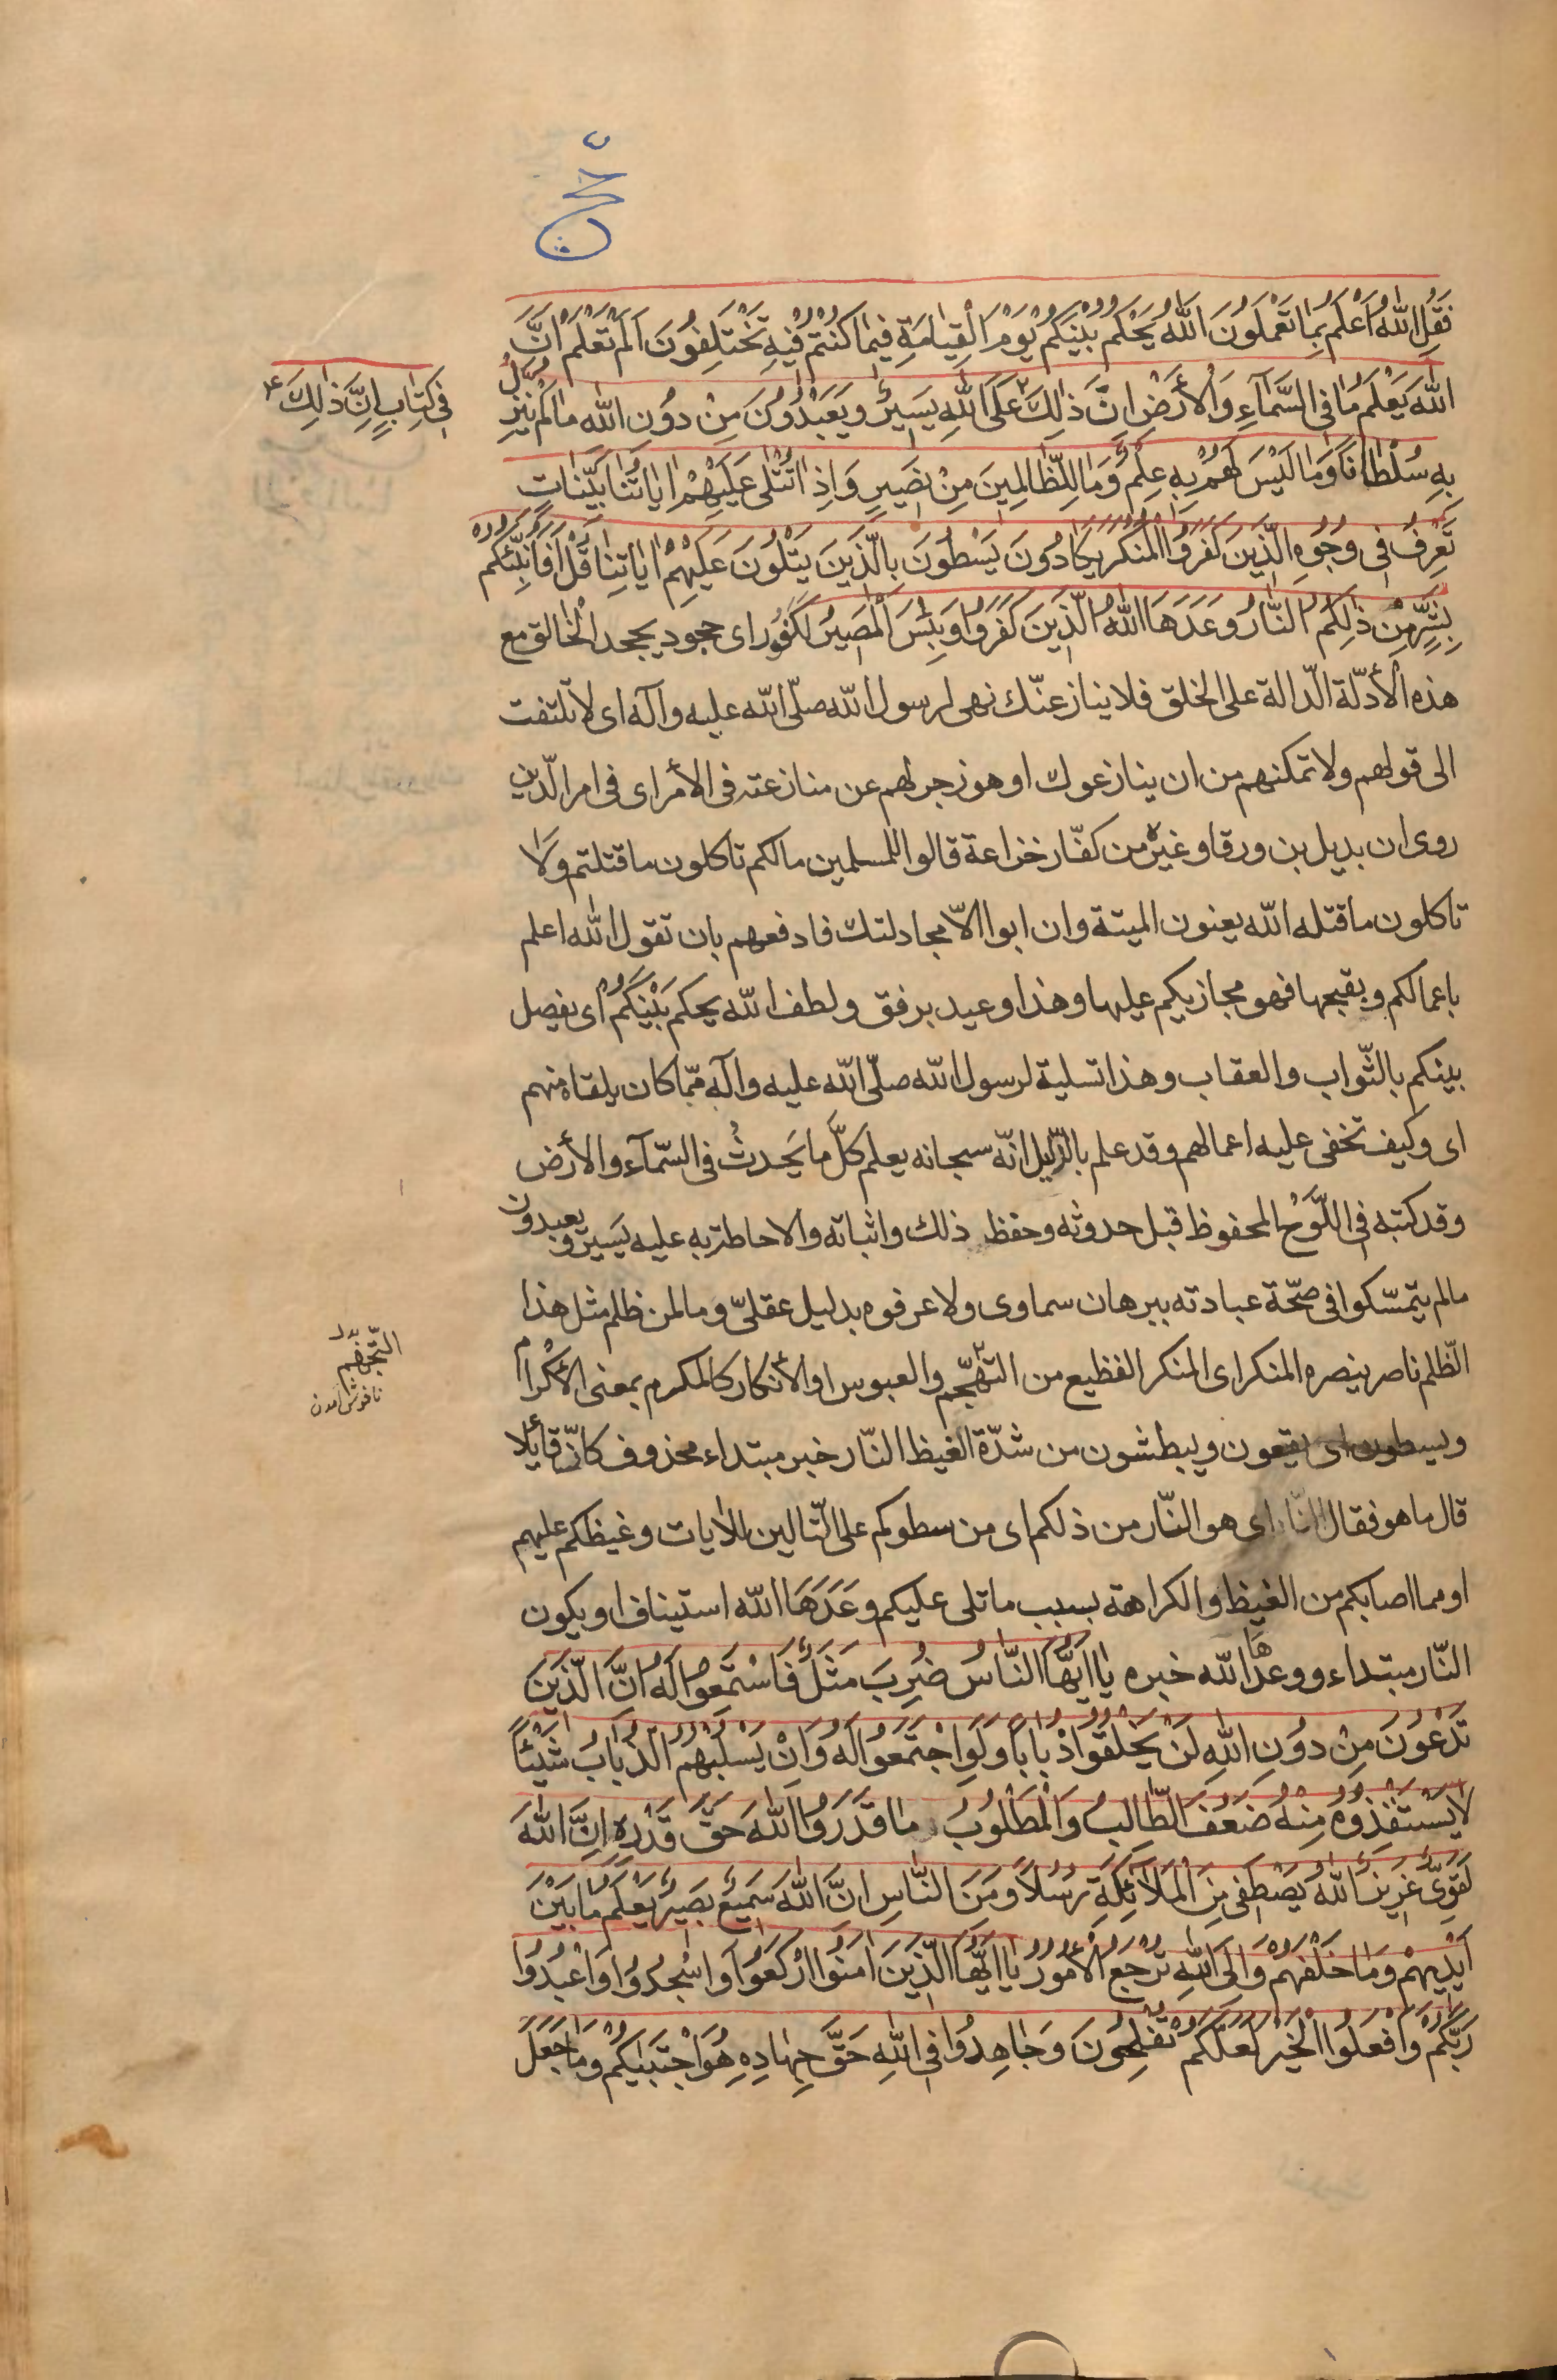 حج
فَقُلِ اللّٰهُ اَعْلَمُ بِمٰا تَعْمَلُونَ اَللّٰهُ يَحْكُمُ بَيْنَكُمْ يَوْمَ الْقِيٰامَةِ فيمٰا كُنْتُمْ فيهِ تَخْتَلِفُونَ اَلَمْ تَعْلَمْ اَنَّ
اللّٰهَ يَعْلَمُ مٰا فِى السَّمٰآءِ وَالْأَرْضِ اِنَّ ذٰلِكَ عَلَى اللّٰهِ يَسيرٌ وَيَعْبُدُونَ مِنْ دُونِ اللّٰهِ مٰا لَمْ يُنَزِّلْ
فى كِتٰابٍ اِنَّ ذٰلِكَ
بِهِ سُلْطٰاناً وَمٰا لَيْسَ لَهُمْ بِهِ عِلْمٌ وَمٰا لِلظّٰالِمينَ مِنْ نَصيرٍ وَاِذٰا تُتْلٰى عَلَيْهِمْ اٰيٰاتُنٰا بَيِّنٰاتٍ
تَعْرِفُ فى وُجُوهِ الَّذينَ كَفَرُوا الْمُنْكَرَ يَكٰادُونَ يَسْطُونَ بِالَّذينَ يَتْلُونَ عَلَيْهِمْ اٰيٰاتِنٰا قُلْ اَفَاُنَبِّئُكُمْ
بِشَرٍّ مِنْ ذٰلِكُمُ النّٰارُ وَعَدَهَا اللّٰهُ الَّذينَ كَفَرُوا وَبِئْسَ الْمَصيرُ لكفور اى جحود يجحد الخالق مع
هذه الأدلّة الدّالة على الخلق فلا ينازعنّك نهى لرسول اللّه صلّى اللّه عليه وآله اى لا تلتفت
الى قولهم ولا تمكنهم من ان ينازعوك او هو زجر لهم عن منازعته فى الأمر اى فى امر الدّين
روى ان بديل بن ورقا وغيره من كفّار خزاعة قالوا للمسلمين مالكم تاكلون ما قتلتم ولا
تاكلون ما قتله اللّه يعنون الميتة وان ابوا الّا مجادلتك فادفعهم بان تقول اللّه اعلم
باعمالكم وبقبحها فهو مجازيكم عليها وهذا وعيد برفق ولطف اللّه يحكم بَيْنَكُمْ اى يفصل
بينكم بالثّواب والعقاب وهذا تسلية لرسول اللّه صلّى اللّه عليه وآله ممّا كان يلقاه منهم
اى وكيف تخفى عليه اعمالهم وقد علم بالدّليل انّه سبحانه يعلم كلَّ ما يَحدثُ فى السّمآء والأرض
وقد كتبه فى اللَّوْح المحفوظ قبل حدوثه وحفظ ذلك واثباته والاحاطة به عليه يَسير ويعبدون
ما لم يتمسّكوا فى صحّة عبادته ببرهان سماوى ولا عرفوه بدليل عقلىّ وما لمن ظلم مثل هذا
الظّلم ناصر ينصره المنكر اى المنكر الفظيع من التهجّم والعبوس او الأنكار كالمكرم بمعنى الأكرام
التّجهّم بدل
ناخوش آمدن
ويسطون اى يقعون ويبطشون من شدّة الغيظ النّار خبر مبتداء محذوف كانّ قائلا
قال ما هو فقال النّار اى هو النّار من ذلكم اى من سطوكم على التّالين للأيات وغيظكم عليهم
او مما اصابكم من الغيظ والكراهة بسبب ما تلى عليكم وَعَدَهَا اللّه استيناف او يكون
النّار مبتداء ووعدها اللّه خبره يٰا اَيُّهَا النّٰاسُ ضُرِبَ مَثَلٌ فَاسْتَمِعُوا لَهُ اِنَّ الَّذينَ
تَدْعُونَ مِنْ دُونِ اللّٰهِ لَنْ يَخْلُقُوا ذُبٰاباً وَلَوِ اجْتَمَعُوا لَهُ وَاِنْ يَسْلُبْهُمُ الذُّبٰابُ شَيْئاً
لٰا يَسْتَنْقِذُوهُ مِنْهُ ضَعُفَ الطّٰالِبُ وَالْمَطْلُوبُ مٰا قَدَرُوا اللّٰهَ حَقَّ قَدْرِهِ اِنَّ اللّٰهَ
لَقَوِىٌّ عَزيزٌ اَللّٰهُ يَصْطَفى مِنَ الْمَلٰآئِكَةِ رُسُلاً وَمِنَ النّٰاسِ اِنَّ اللّٰهَ سَميعٌ بَصيرٌ يَعْلَمُ مٰا بَيْنَ
اَيْديهِمْ وَمٰا خَلْفَهُمْ وَاِلَى اللّٰهِ تُرْجَعُ الْأُمُورُ يٰا اَيُّهَا الَّذينَ اٰمَنُوا ارْكَعُوا وَاسْجُدُوا وَاعْبُدُوا
رَبَّكُمْ وَافْعَلُوا الْخَيْرَ لَعَلَّكُمْ تُفْلِحُونَ وَجٰاهِدُوا فِى اللّٰهِ حَقَّ جِهٰادِهِ هُوَ اجْتَبٰيكُمْ وَمٰا جَعَلَ